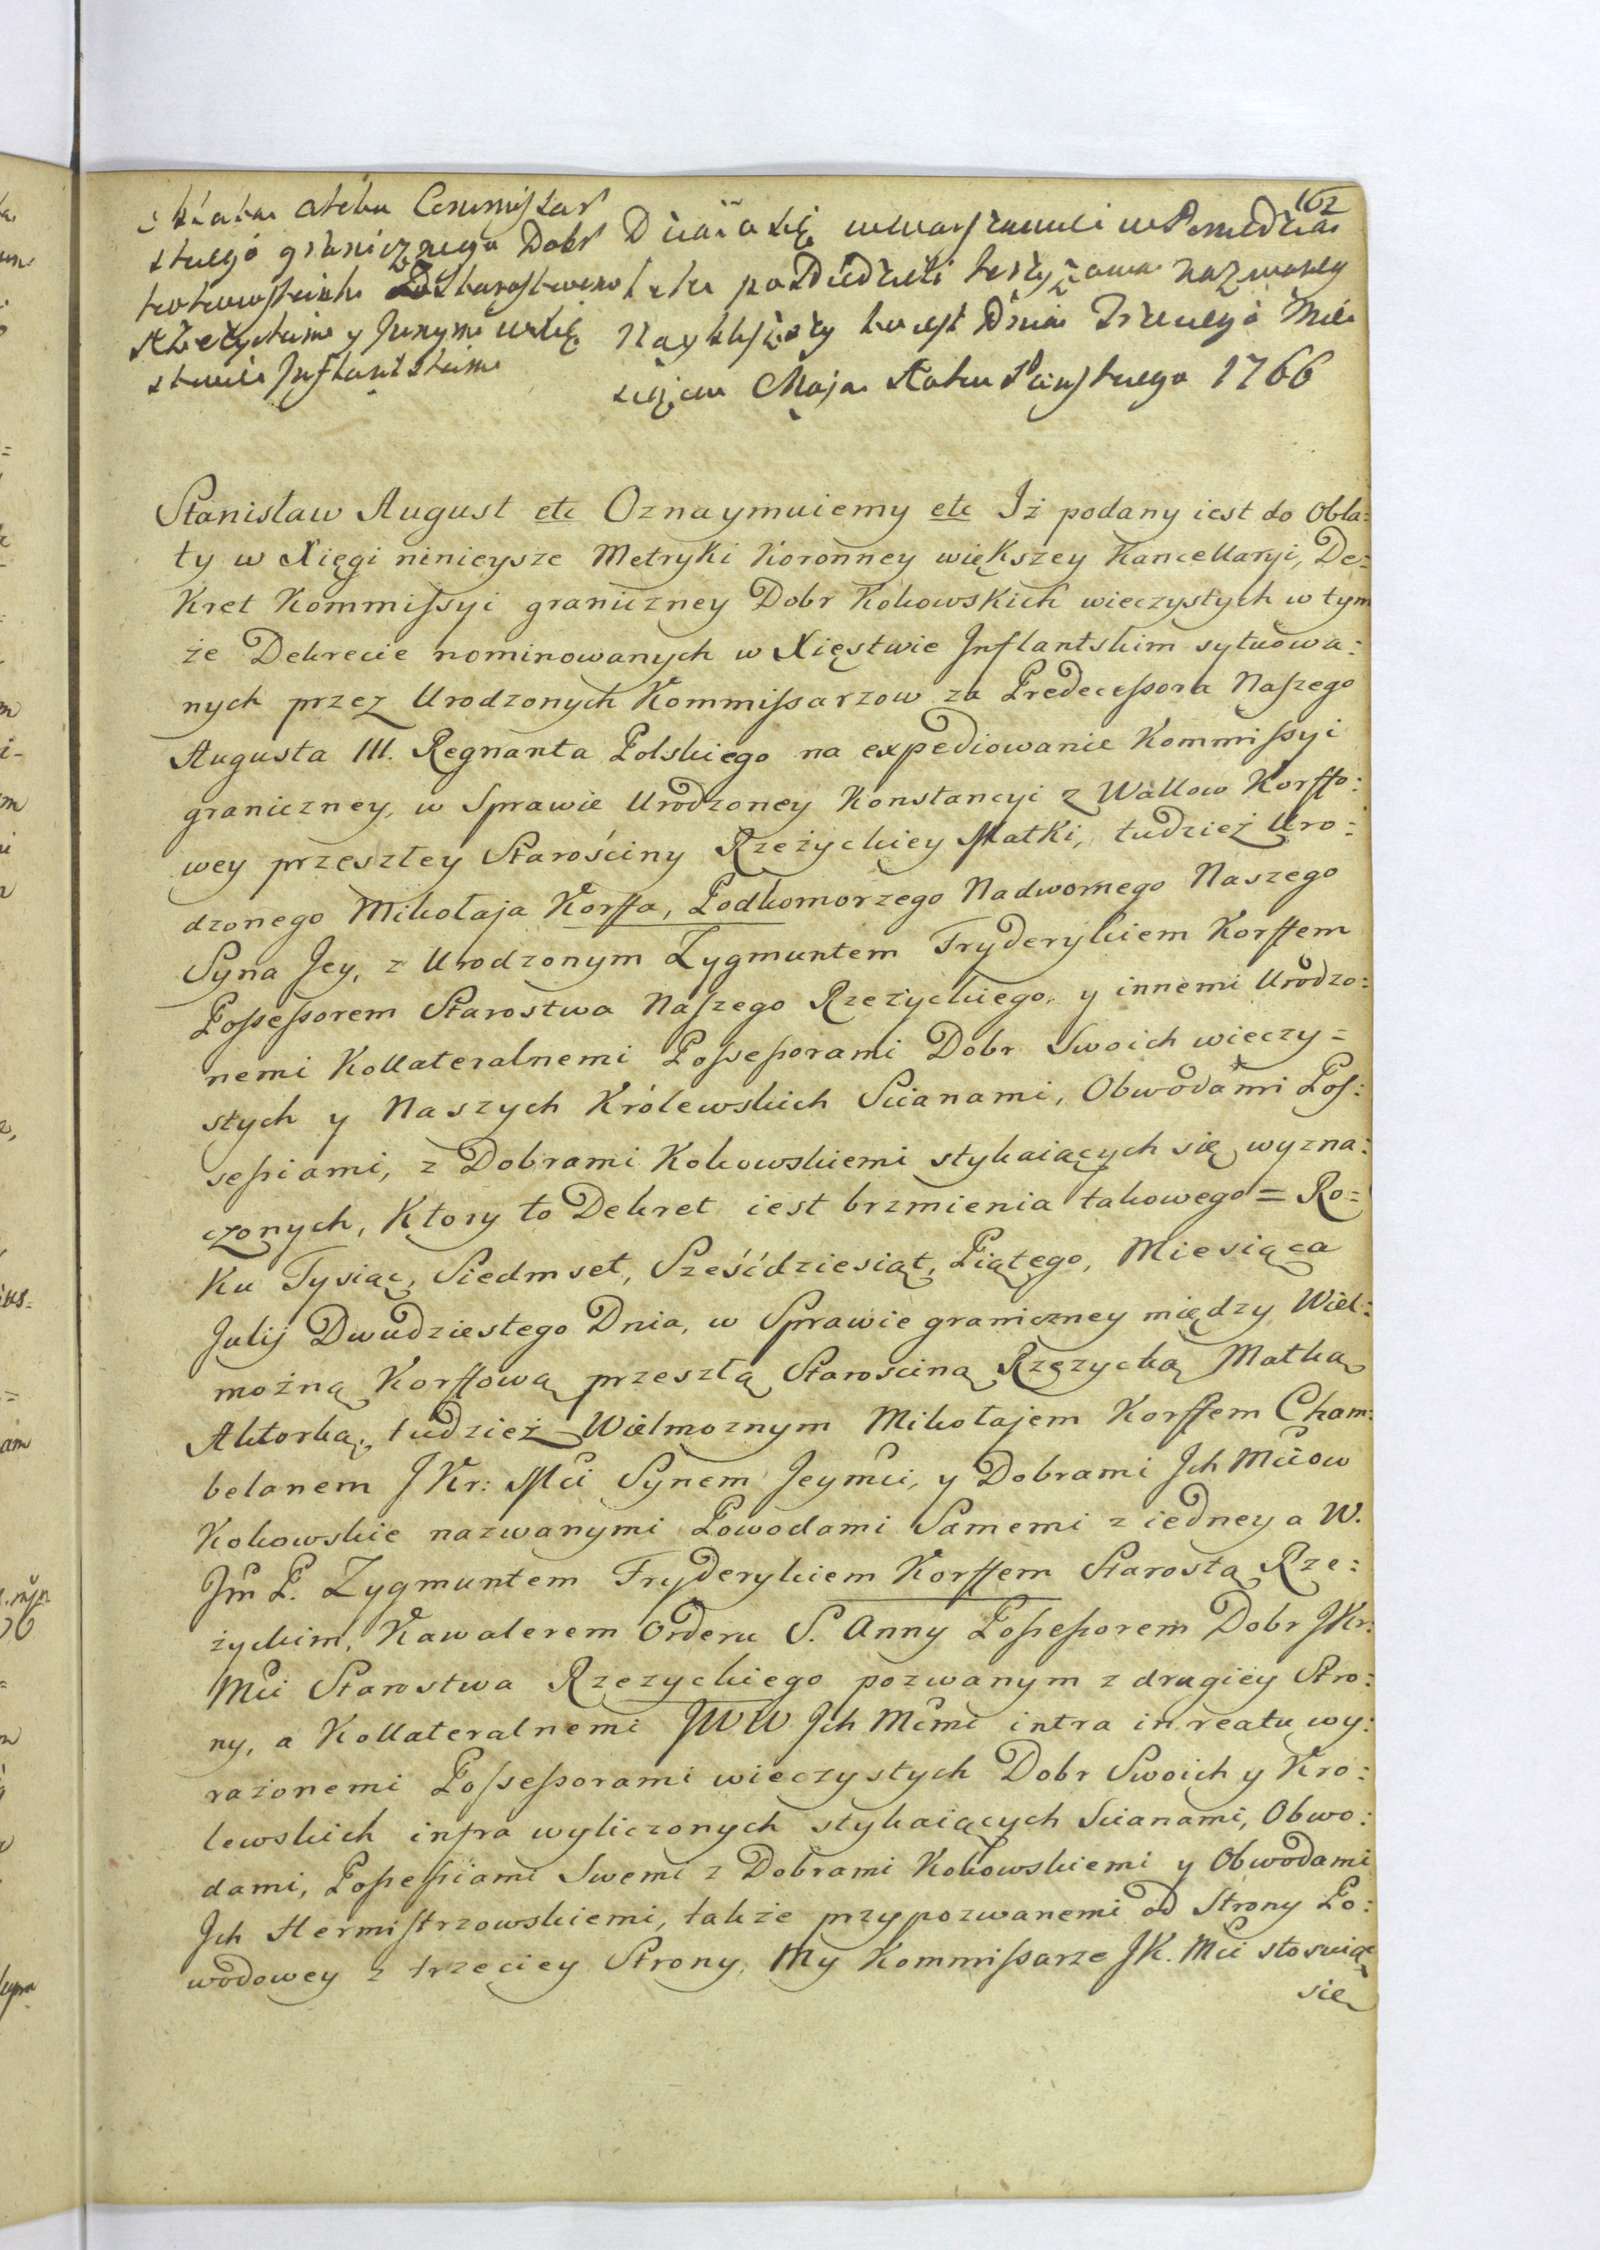 162
Oblata aktu Commissar
skiego granicznego Dobr
kokowskich Zestarostwem
Rzeżyckim y Jnnymi w Xię
stwie Jnflantskim
Działo się w Warszawie w Poniedział
lek po Niedzieli krzyżowa nazwaney
Nayblisszy to iest Dnia Trzeciego Mie
siąca Maja Roku Pańskiego 1766
Stanisław August etc Oznaymuiemy etc Iż podany iest do Obla:
ty w Xięgi ninieysze Metryki Koronney większey Kancellaryi, De:
kret Kommissyi graniczney Dobr Kokowskich wieczystych w tym
że Dekrecie nominowanych w Xięstwie Jnflantskim sytuowa:
nych przez Urodzonych Kommissarzow za Predecessora Naszego
Augusta III. Regnanta Polskiego na expediowanie Kommissyi
graniczney, w Sprawie Urodzoney Konstancyi z Wallow Korffo:
wey przeszłey Starościny Rzeżyckiey Matki, tudzież Uro:
dzonego Mikołaja Korffa, Podkomorzego Nadwornego Naszego
Syna Jey, z Urodzonym Zygmuntem Fryderykiem Korffem
Possessorem Starostwa Naszego Rzeżyckiego, y innemi Urodzo:
nemi Kollateralnemi Possessorami Dobr Swoich wieczy=
stych y Naszych Królewskich Scianami, Obwodami Pos:
sessiami, z Dobrami Kokowskiemi stykaiących się wyzna:
czonych, Ktory to Dekret iest brzmienia takowego = Ro=
ku Tysiąc, Siedmset, Sześćdziesiąt, Piątego, Miesiąca
Julij Dwudziestego Dnia, w Sprawie graniczney między Wiel:
możną Korffową przeszłą Starościną Rzezycką Matką
Aktorką, tudzież Wielmożnym Mikołajem Korffem Cham:
belanem JKr: Mci Synem Jeymci, y Dobrami Jch Mciow
Kokowskie nazwanymi Powodami Samemi z iedney a W.
Jm P. Zygmuntem Fryderykiem Korffem Starostą Rze:
życkim, Kawalerem Orderu S. Anny Possessorem Dobr JKr:
Mci Starostwa Rzezyckiego pozwanym z drugiey Stro:
ny, a Kollateralnemi JWW Jch Mcmi intra in reatu wy:
rażonemi Possessorami wieczystych Dobr Swoich y Kro:
lewskich infra wyliczonych stykaiących Scianami, Obwo:
dami, Possessiami Swemi z Dobrami Kokowskiemi y Obwodami
Jch Hermistrzowskiemi, także przypozwanemi od Strony Po:
wodowey z trzeciey Strony, My Kommissarze JK. Mci stosuiąc
się